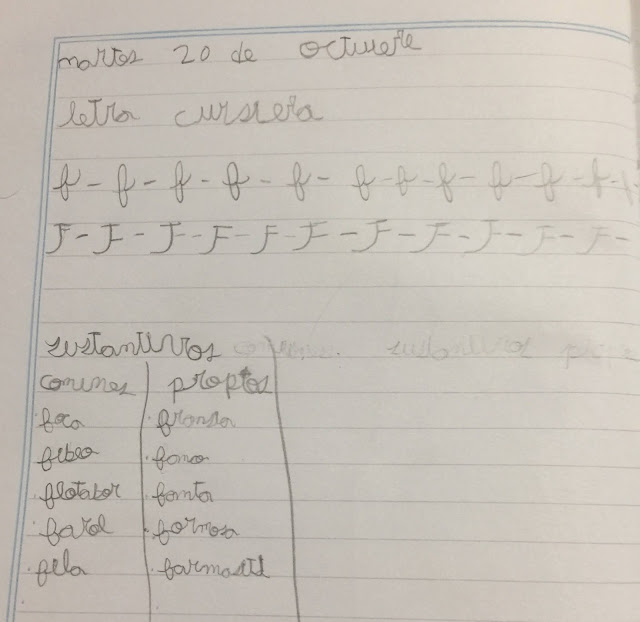 martes 20 de octuere
letra cursiera
f - f - f - f - f - f - f - f - f - f - f - f
F - F - F - F - F - F - F - F - F - F - F -
sustantivos comunes. sustantivos propi
comunes propios
.foca .fransa
.febeo .fono
.flotabor .fanta
.farol .formosa
.fela .farmacit